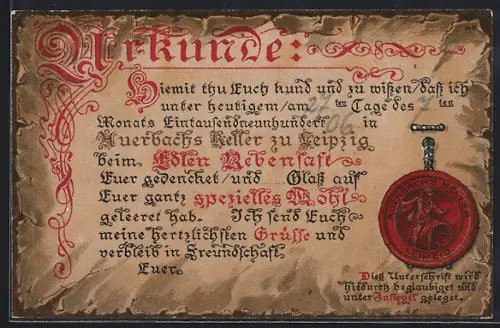 Urkunde:
Hiemit thu Euch kund und zu wißen/daß ich
unter heutigem/am 27 ten Tage des 7 ten
Monats Eintausendneunhundert 06 in
Auerbachs Keller zu Leipzig
beim Edlen Rebensaft
Euer gedencket/und Glaß auf
Euer gantz spezielles Wohl
geleeret hab. Ich send Euch
meine hertzlichsten Grüsse und
verbleib in Freundschaft
Euer
AUERBACHS KELLER
LEIPZIG
Dieß Unterschrift wird
hiedurch beglaubiget und
unter Insiegel geleget.